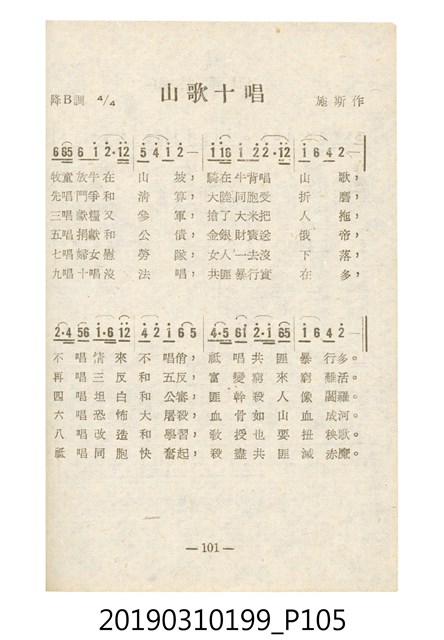 山歌十唱
降B調 4/4 施斯作
6 65 6 1 2·12 5 4 1 2— 1 116 1 2 2·12 1 6 4 2—
牧童放牛在山坡，騎在牛背唱山歌，
先唱鬥爭和清算，大陸同胞受折磨，
三唱獻糧又參軍，搶了大米把人拖，
五唱捐獻和公債，金銀財寶送俄帝，
七唱婦女慰勞隊，女人一去沒下落，
九唱十唱沒法唱，共匪暴行實在多，
2·4 56 1·6 12 4·2 1 6 5 4·5 61 2·1 65 1 6 4 2—
不唱情來不唱俏，祗唱共匪暴行多。
再唱三反和五反，富變窮來窮難活。
四唱坦白和公審，匪幹殺人像閻羅。
六唱恐怖大屠殺，血骨如山血成河。
八唱改造和學習，教授也要扭秧歌。
祗唱同胞快奮起，殺盡共匪滅赤魔。
—101—
20190310199_P105